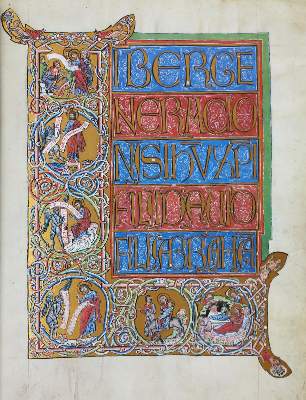 LIBERGE
NERACIO
NISIHVXPI
FILIIDAVID
FILIIABRAHA